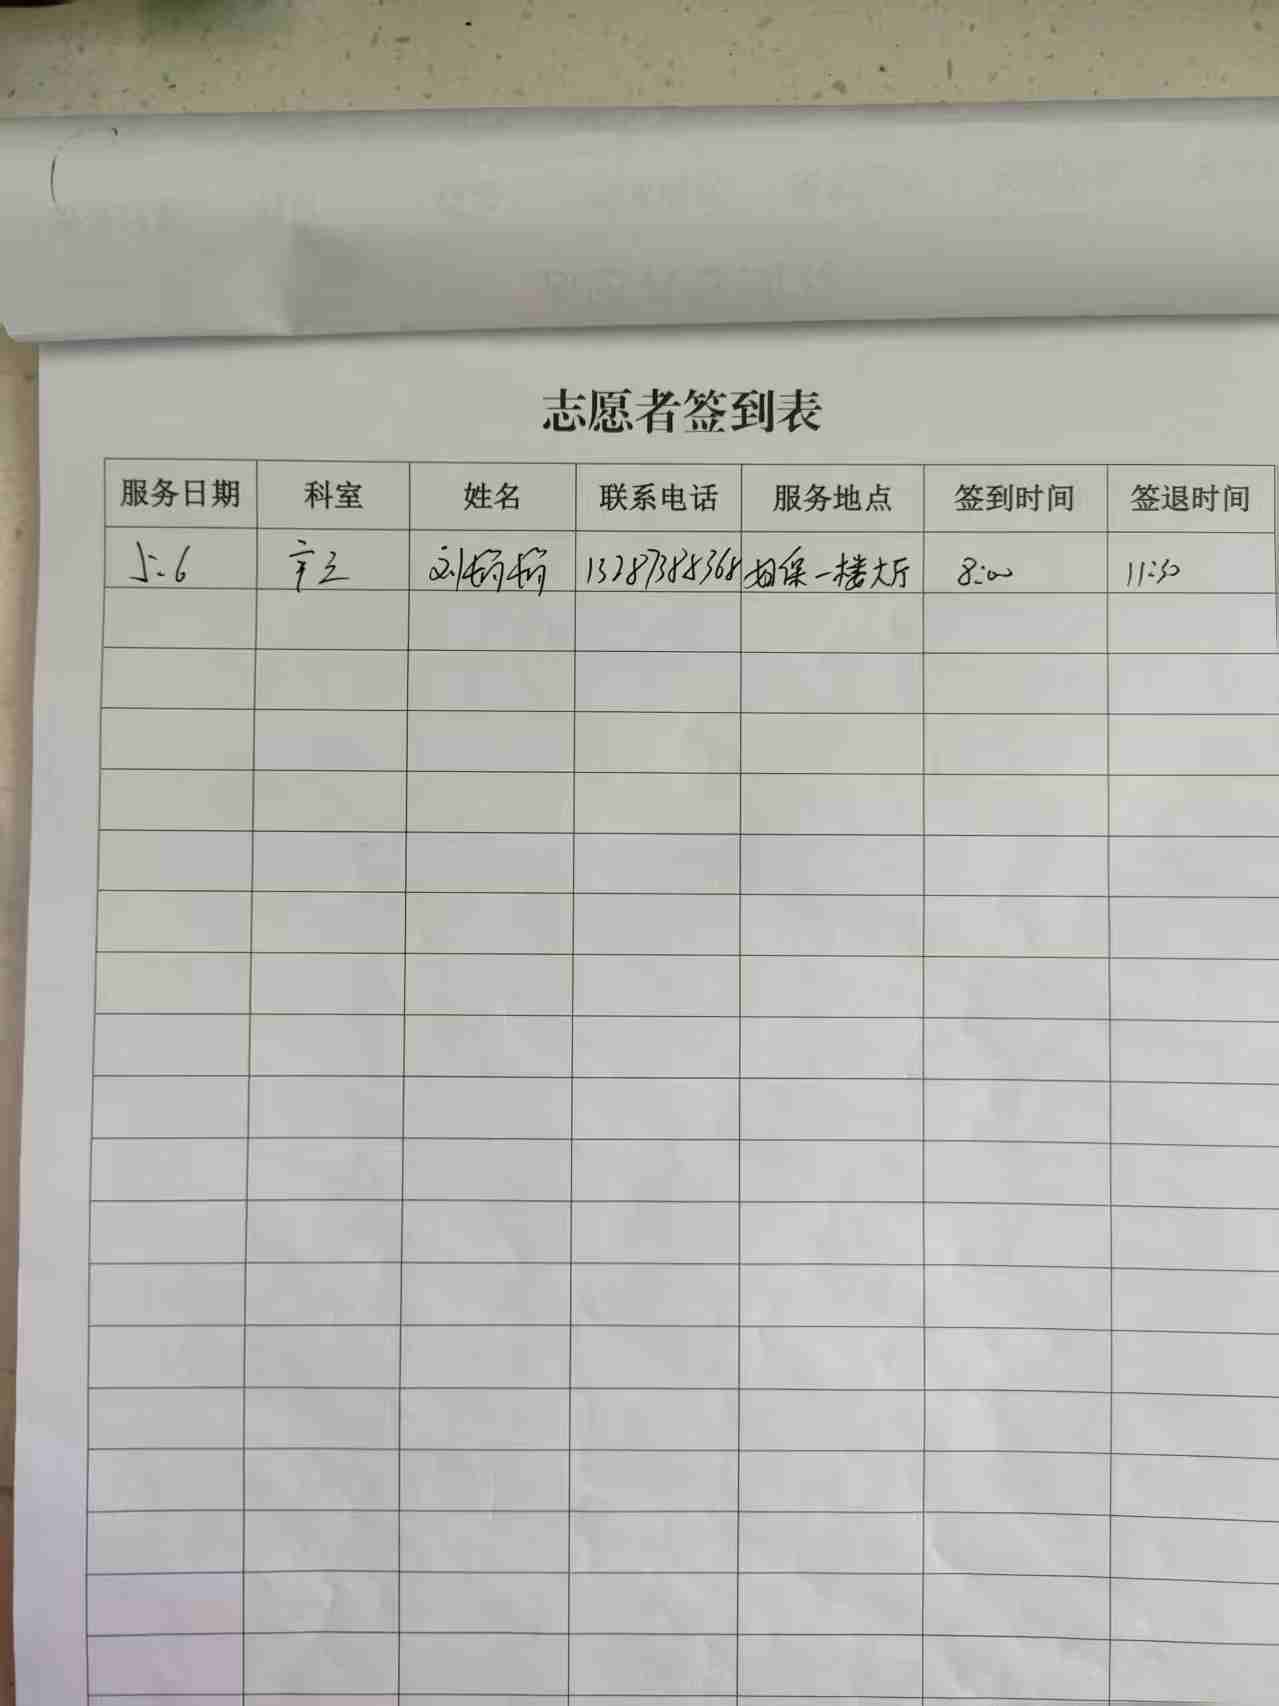 志愿者签到表
服务日期 科室 姓名 联系电话 服务地点 签到时间 签退时间
5.6 刘 13287388368 妇保一楼大厅 8:00 11:30